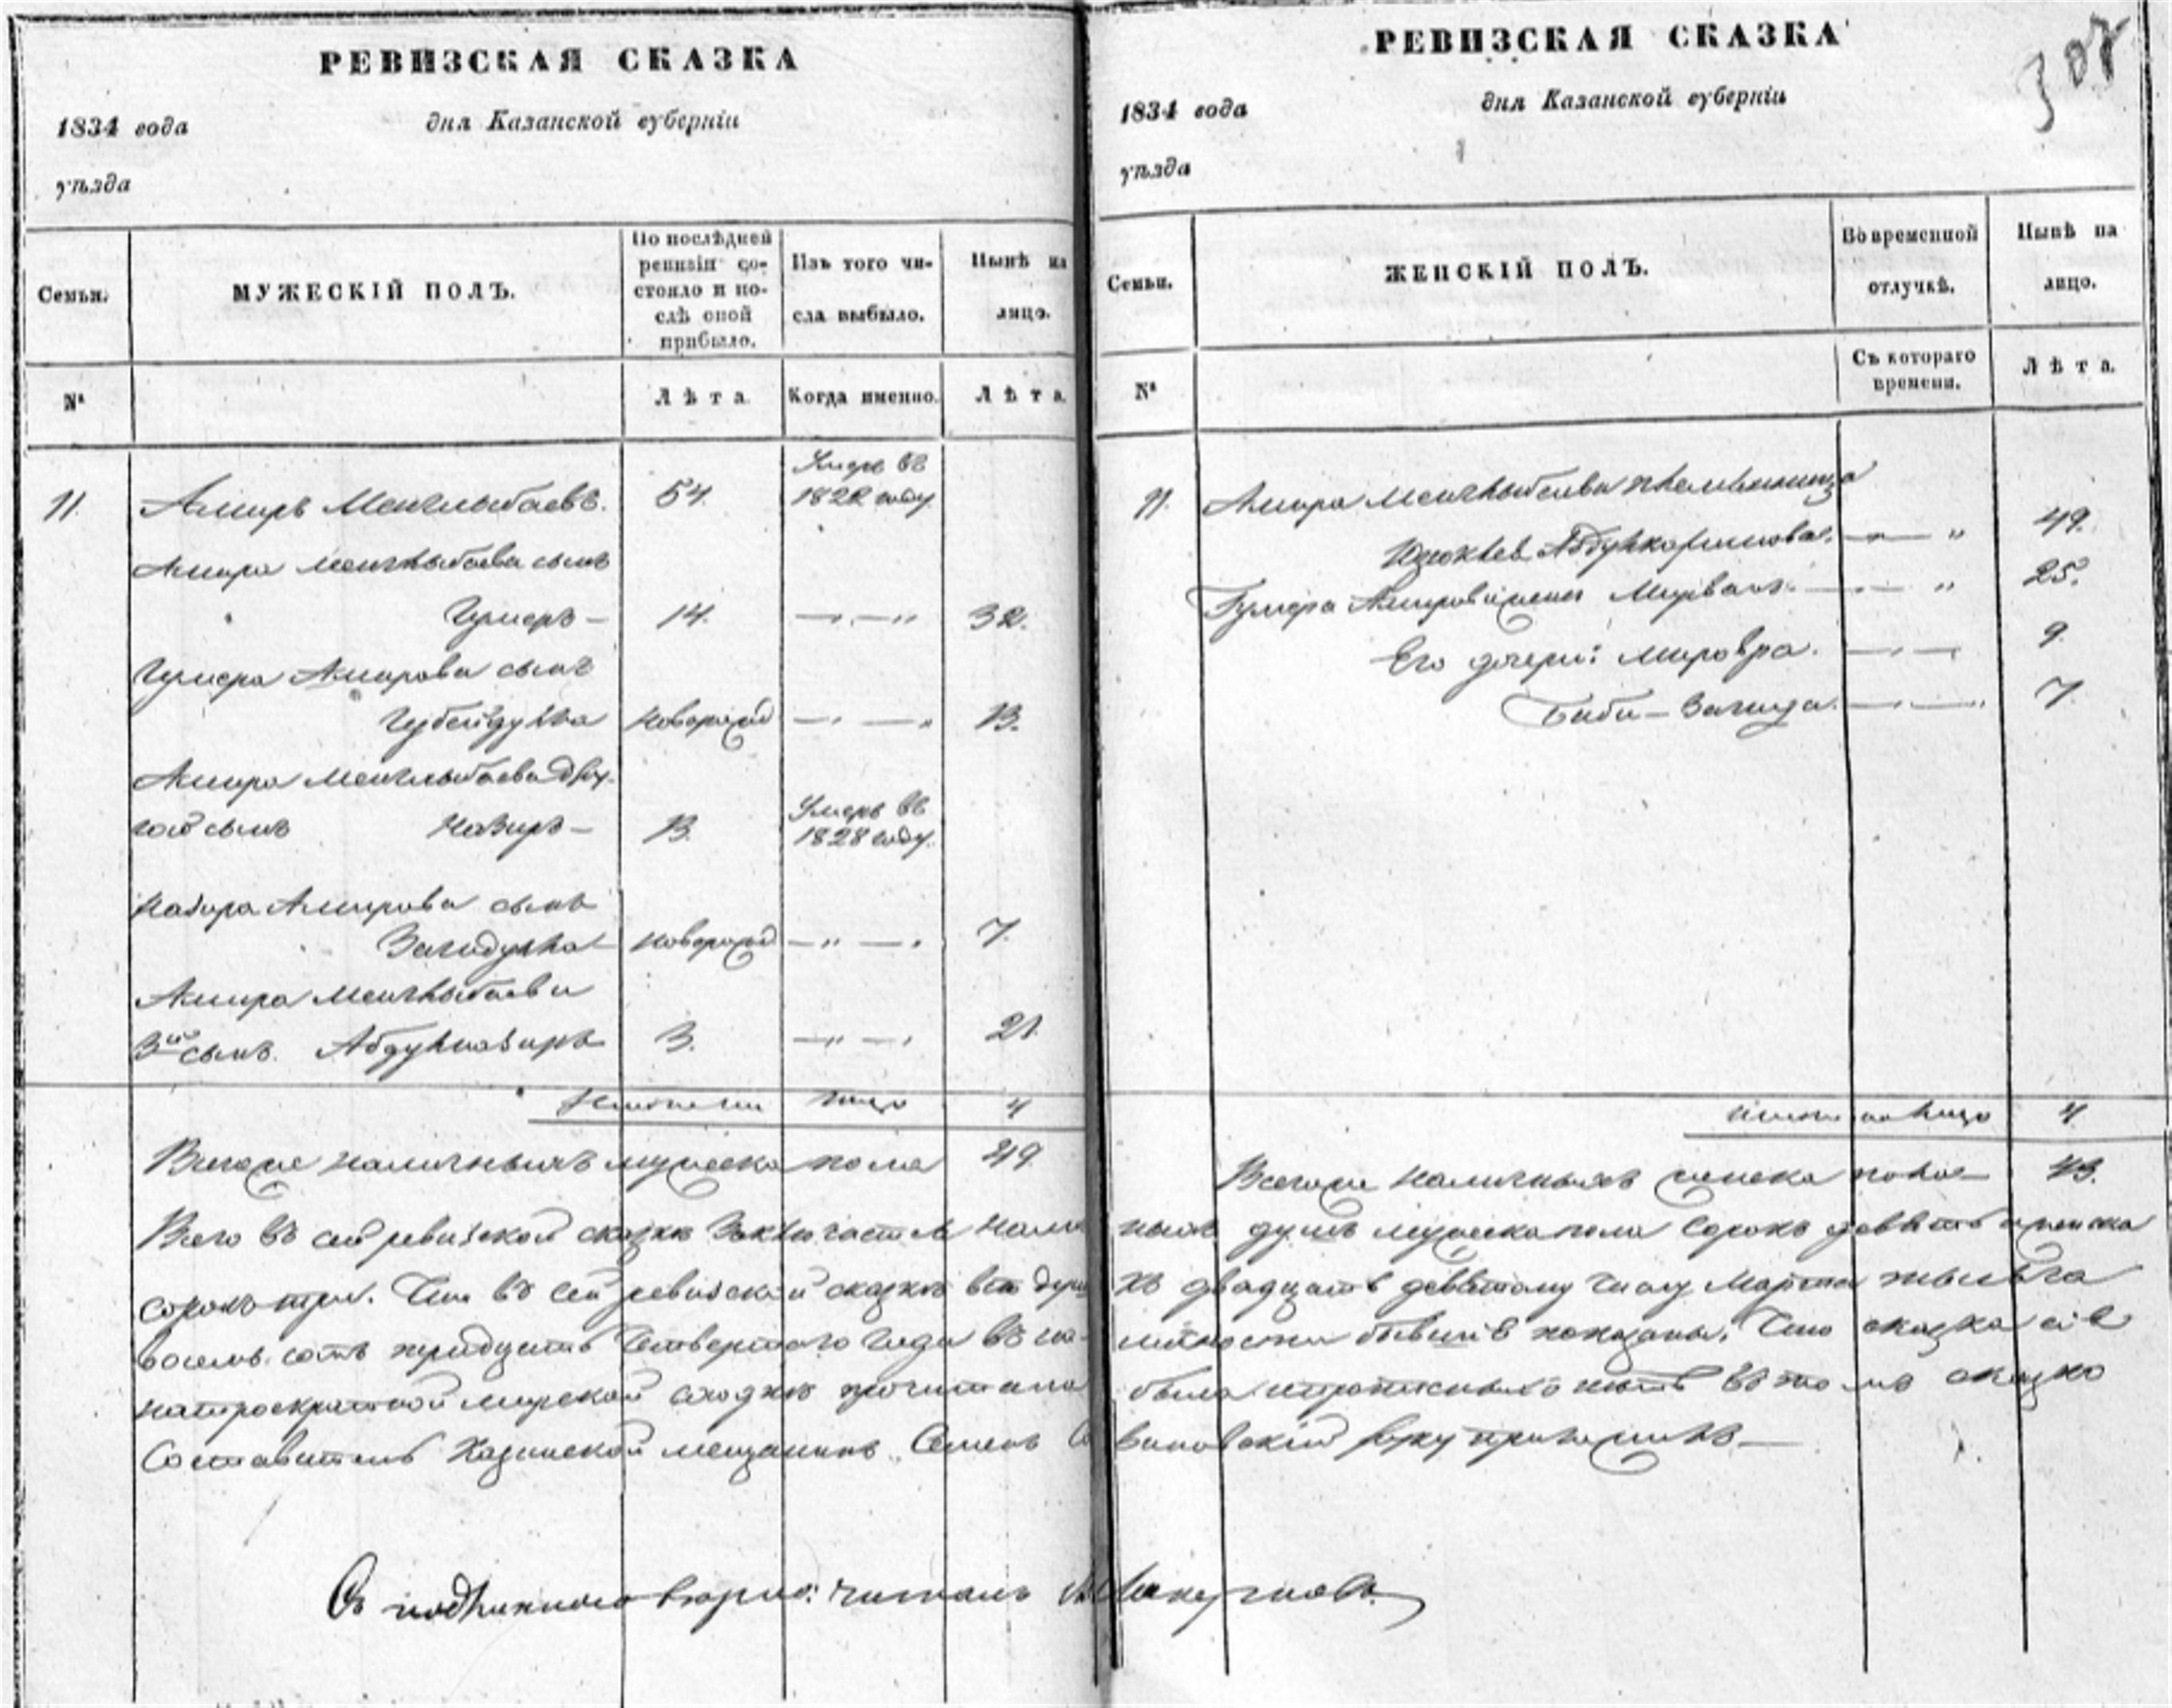 РЕВИЗСКАЯ СКАЗКА
1834 года дня Казанской губерніи
уѣзда
Семьи.
МУЖЕСКІЙ ПОЛЪ.
По послѣдней ревизіи состояло и послѣ оной прибыло.
Изъ того числа выбыло.
Нынѣ на лицо.
№
Лѣта.
Когда именно.
Лѣта.
11. Амиръ Менглыбаевъ. 54. Умеръ въ 1822 году
Амира Менглыбаева сынъ
Гумеръ — 14. 32.
Гумера Амирова сынъ
Губейдулла новорожд 13.
Амира Менглыбаева дру-
гой сынъ Назиръ — 13. Умеръ въ 1828 году.
Назира Амирова сынъ
Загидулла новорожд 7.
Амира Менглыбаева
3й сынъ. Абдулназиръ 3. 21.
лицо 4
Всего же наличныхъ мужеска пола 49
РЕВИЗСКАЯ СКАЗКА
307
1834 года дня Казанской губерніи
уѣзда
Семьи.
ЖЕНСКІЙ ПОЛЪ.
Во временной отлучкѣ.
Нынѣ на лицо.
№
Съ котораго времени.
Лѣта.
11. Амира Менглыбаева
Абдулкаримова. 49.
Гумера Амирова жена 25.
Его дочери: 9.
Биби-Загида. 7.
на лицо 4
Всего же наличныхъ женска пола 43.
Всего въ сей ревизской сказкѣ заключается налич ныхъ душъ мужеска пола сорокъ девять женска
сорокъ три. Что въ сей ревизской сказкѣ всѣ души къ двадцать девятому числу Марта тысяча
восемь сотъ тридцать четвертаго года въ на личности бывшія показаны. Что сказка сія
на троекратной мирской сходкѣ прочитана была и пропискныхъ нѣтъ въ томъ сказко
составитель мещанинъ Семенъ руку приложилъ —
Съ подлиннаго вѣрно: читалъ